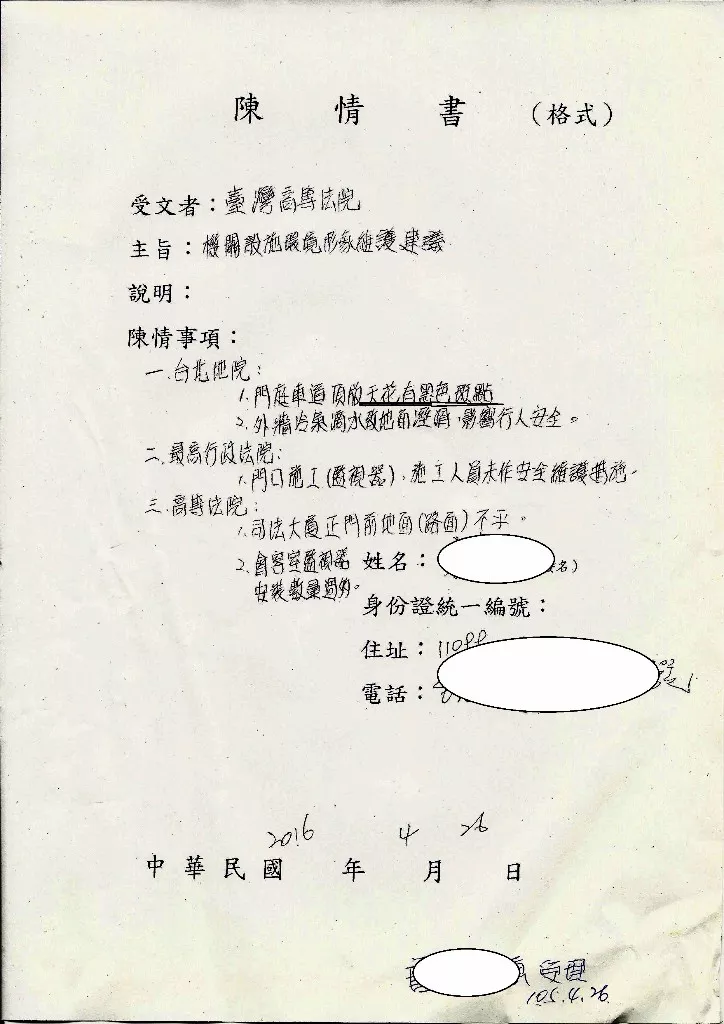 陳情書(格式)
受文者:臺灣高等法院
主旨:機關設施環境形象維護建議
說明:
陳情事項:
一.台北地院:
1.門庭車道頂版天花有黑色斑點
2.外牆冷氣滴水致地面溼滑,影響行人安全。
二.最高行政法院:
1.門口施工(監視器),施工人員未作安全維護措施。
三.高等法院:
1.司法大廈正門前地面(路面)不平。
2.會客室監視器
安裝數量過多。
姓名: 名)
身份證統一編號:
住址:110
電話:
2016 4 26
中華民國 年 月 日
受理
105.4.26